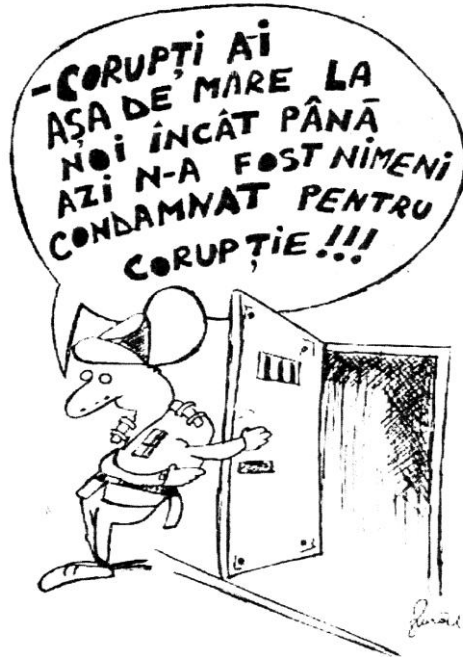 -CORUPȚi A-i
AȘA DE MARE LA
NOi ÎNCÂT PÂNĂ
AZi N-A FOST NIMENI
CONDAMNAT PENTRU
CORUPȚiE!!!